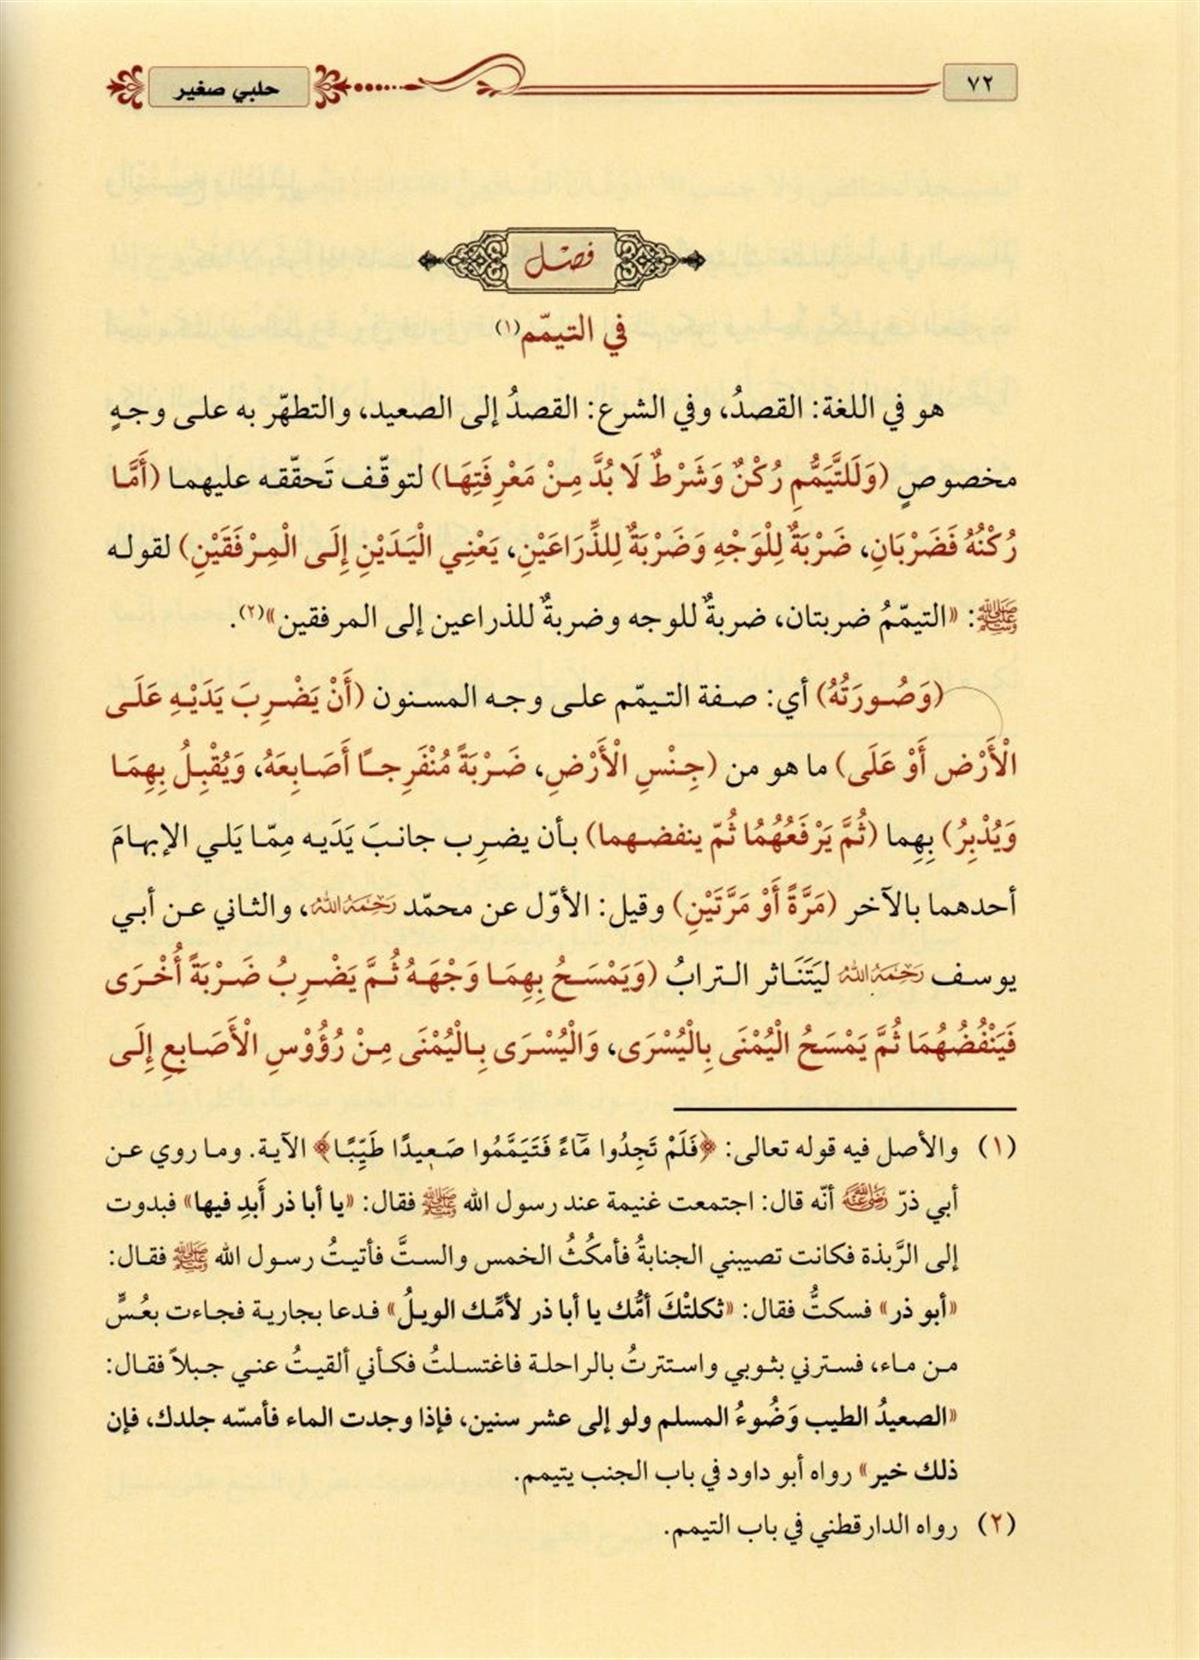 ٧٢
حلبي صغير
فصل
في التيمّم(١)
هو في اللغة: القصدُ، وفي الشرع: القصدُ إلى الصعيد، والتطهّر به على وجهٍ
مخصوصٍ (وَلَلتَّيَمُّمِ رُكْنٌ وَشَرْطٌ لَا بُدَّ مِنْ مَعْرِفَتِهَا) لتوقّف تَحقّقه عليهما (أَمَّا
رُكْنُهُ فَضَرْبَانِ، ضَرْبَةٌ لِلْوَجْهِ وَضَرْبَةٌ لِلذِّرَاعَيْنِ، يَعْنِي الْيَدَيْنِ إِلَى الْمِرْفَقَيْنِ) لقوله
ﷺ: «التيمّمُ ضربتان، ضربةٌ للوجه وضربةٌ للذراعين إلى المرفقين»(٢).
(وَصُورَتُهُ) أي: صفة التيمّم على وجه المسنون (أَنْ يَضْرِبَ يَدَيْهِ عَلَى
الْأَرْض أَوْ عَلَى) ما هو من (جِنْسِ الْأَرْضِ، ضَرْبَةً مُنْفَرِجًا أَصَابِعَهُ، وَيُقْبِلُ بِهِمَا
وَيُدْبِرُ) بِهِما (ثُمَّ يَرْفَعُهُمُا ثُمّ ينفضهما) بأن يضرِب جانبَ يَدَيه مِمّا يَلي الإبهامَ
أحدهما بالآخر (مَرَّةً أَوْ مَرَّتَيْنِ) وقيل: الأوّل عن محمّد رَحِمَهُ اللهُ، والثاني عن أبي
يوسف رَحِمَهُ اللهُ ليَتَنَاثر الترابُ (وَيَمْسَحُ بِهِمَا وَجْهَهُ ثُمَّ يَضْرِبُ ضَرْبَةً أُخْرَى
فَيَنْفُضُهُمَا ثُمَّ يَمْسَحُ الْيُمْنَى بِالْيُسْرَى، وَالْيُسْرَى بِالْيُمْنَى مِنْ رُؤُوْسِ الْأَصَابِعِ إِلَى
(١) والأصل فيه قوله تعالى: ﴿فَلَمْ تَجِدُوا مَآءً فَتَيَمَّمُوا صَعِيدًا طَيِّبًا﴾ الآية. وما روي عن
أبي ذرّ رَضِيَ اللهُ عَنْهُ أنّه قال: اجتمعت غنيمة عند رسول الله ﷺ فقال: «يا أبا ذر أَبدِ فيها» فبدوت
إلى الرَّبذة فكانت تصيبني الجنابةُ فأمكُثُ الخمس والستَّ فأتيتُ رسول الله ﷺ فقال:
«أبو ذر» فسكتُّ فقال: «ثكلتْكَ أمُّك يا أبا ذر لأمِّك الويلُ» فدعا بجارية فجاءت بعُسٍّ
من ماء، فسترني بثوبي واستترتُ بالراحلة فاغتسلتُ فكأني ألقيتُ عني جبلاً فقال:
«الصعيدُ الطيب وَضُوءُ المسلم ولو إلى عشر سنين، فإذا وجدت الماء فأمسّه جلدك، فإن
ذلك خير» رواه أبو داود في باب الجنب يتيمم.
(٢) رواه الدارقطني في باب التيمم.